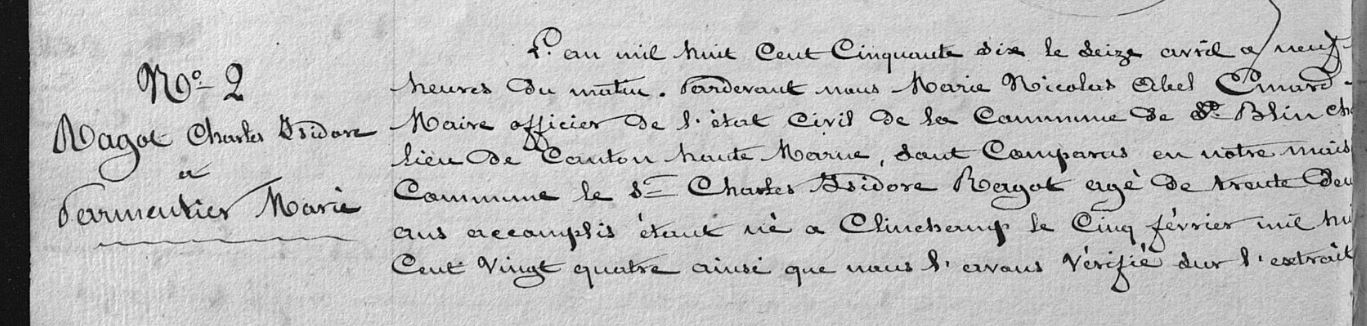 N.º 2
Ragot Charles Isidore
a
Parmentier Marie
L'an mil huit Cent Cinquante Six le Seize avril a neuf
heures du matin. Pardevant nous Marie Nicolas Abel
Maire officier de l'état Civil de la Commune de St Blin
lieu de Canton haute Marne, Sont Comparus en notre
Commune le Sr Charles Isidore Ragot agé de trente
ans accomplis étant né a Clinchamp le Cinq février mil
Cent Vingt quatre ainsi que nous l'avons Vérifié Sur l'extrait